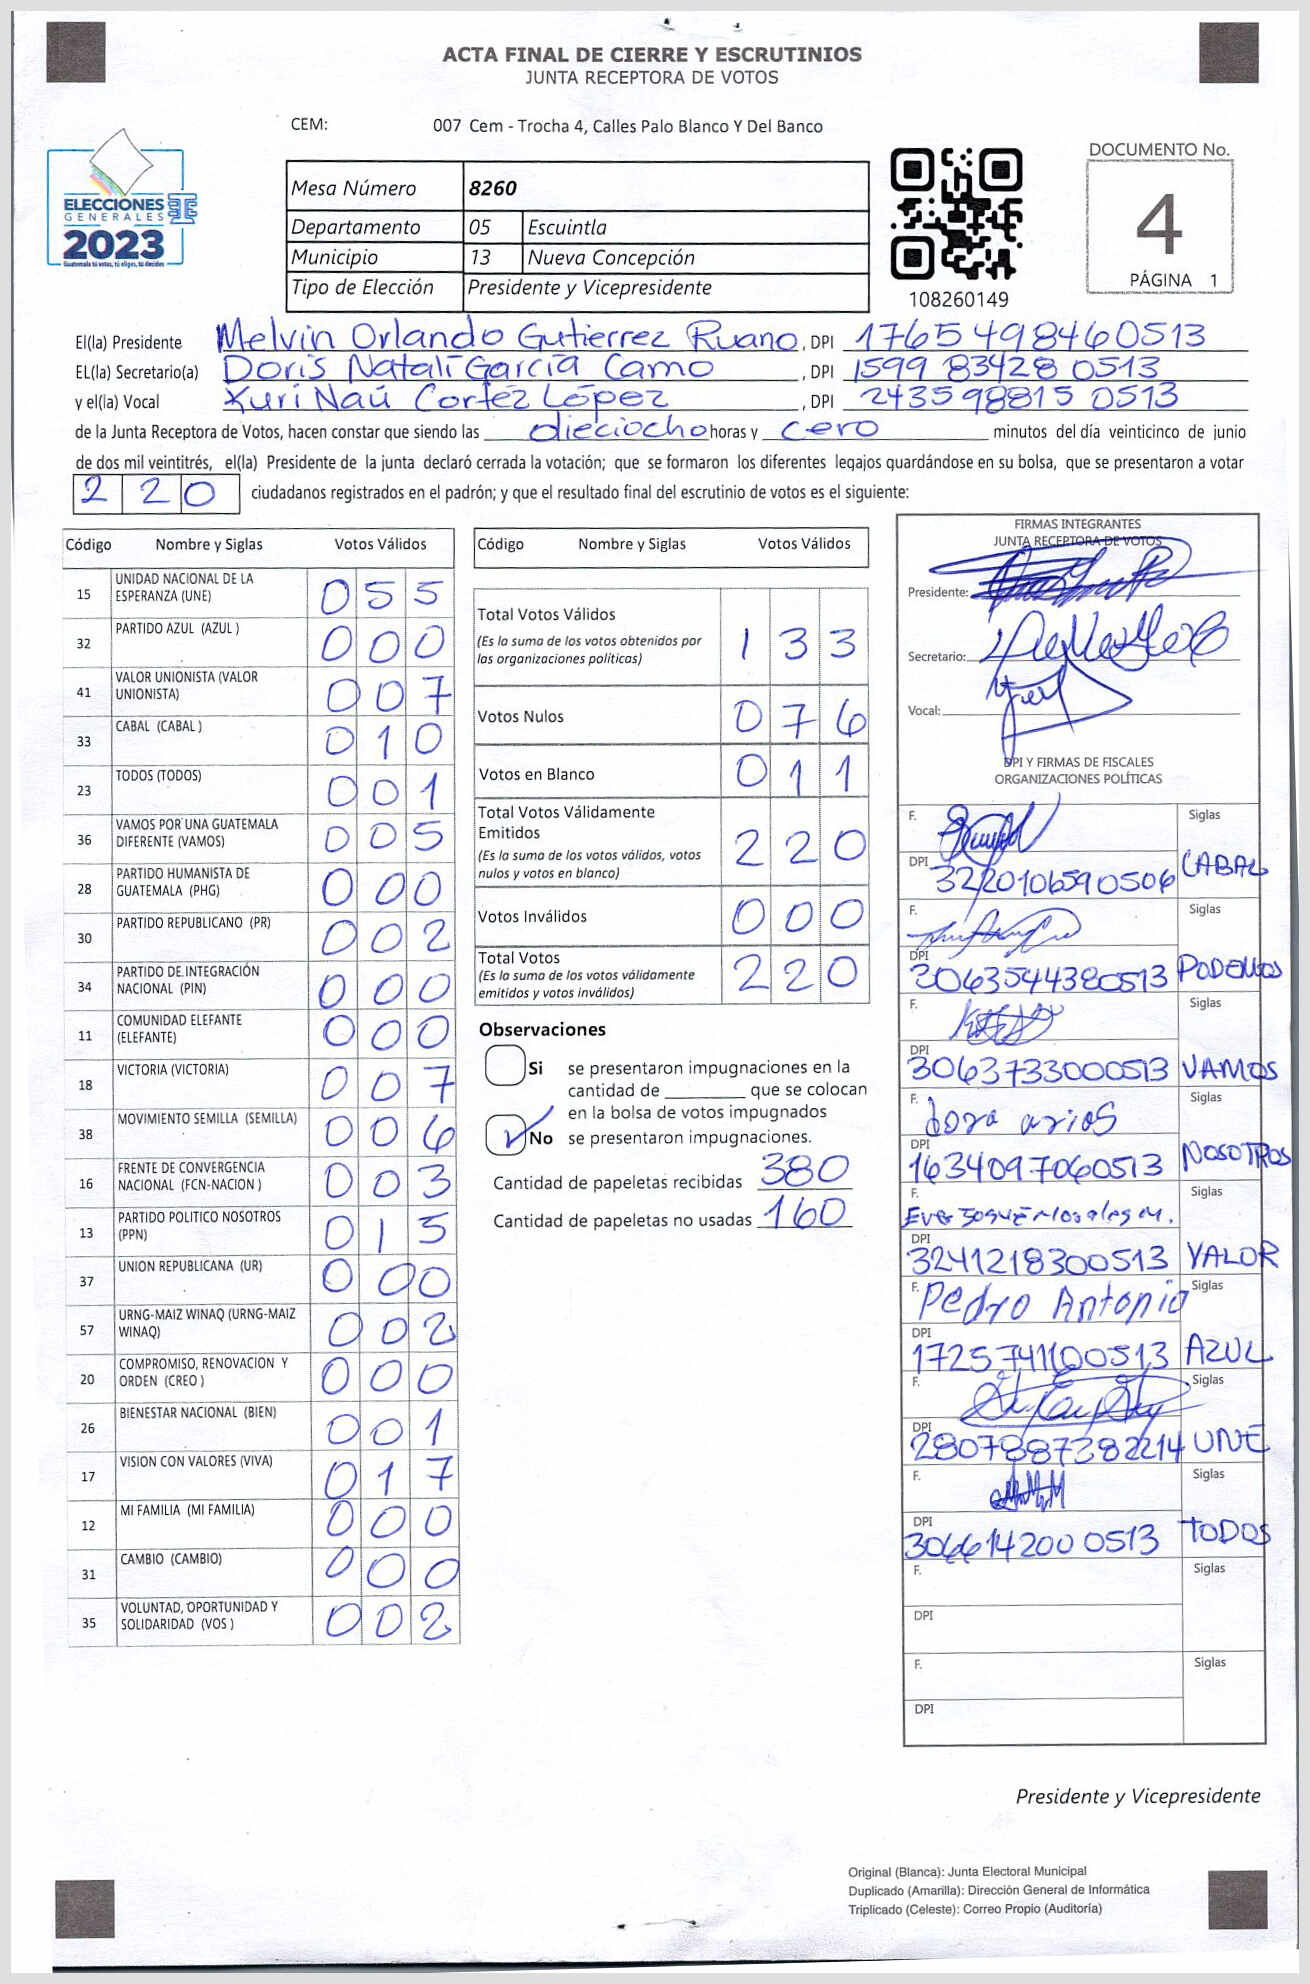 ACTA FINAL DE CIERRE Y ESCRUTINIOS
JUNTA RECEPTORA DE VOTOS
CEM: 007 Cem - Trocha 4, Calles Palo Blanco Y Del Banco
ELECCIONES
GENERALES
2023
Guatemala tú votas, tú eliges, tú decides
Mesa Número 8260
Departamento 05 Escuintla
Municipio 13 Nueva Concepción
Tipo de Elección Presidente y Vicepresidente
108260149
DOCUMENTO No.
4
PÁGINA 1
El(la) Presidente Melvin Orlando Gutierrez Ruano, DPI 1765498460513
EL(la) Secretario(a) Doris Natalí García Camo, DPI 1599 83428 0513
y el(la) Vocal Yuri Naú Cortéz López, DPI 243598815 0513
de la Junta Receptora de Votos, hacen constar que siendo las dieciocho horas y cero minutos del día veinticinco de junio
de dos mil veintitrés, el(la) Presidente de la junta declaró cerrada la votación; que se formaron los diferentes legajos guardándose en su bolsa, que se presentaron a votar
220 ciudadanos registrados en el padrón; y que el resultado final del escrutinio de votos es el siguiente:
Código Nombre y Siglas Votos Válidos
15 UNIDAD NACIONAL DE LA ESPERANZA (UNE) 055
32 PARTIDO AZUL (AZUL ) 000
41 VALOR UNIONISTA (VALOR UNIONISTA) 007
33 CABAL (CABAL ) 010
23 TODOS (TODOS) 001
36 VAMOS POR UNA GUATEMALA DIFERENTE (VAMOS) 005
28 PARTIDO HUMANISTA DE GUATEMALA (PHG) 000
30 PARTIDO REPUBLICANO (PR) 002
34 PARTIDO DE INTEGRACIÓN NACIONAL (PIN) 000
11 COMUNIDAD ELEFANTE (ELEFANTE) 000
18 VICTORIA (VICTORIA) 007
38 MOVIMIENTO SEMILLA (SEMILLA) 006
16 FRENTE DE CONVERGENCIA NACIONAL (FCN-NACION ) 003
13 PARTIDO POLITICO NOSOTROS (PPN) 015
37 UNION REPUBLICANA (UR) 000
57 URNG-MAIZ WINAQ (URNG-MAIZ WINAQ) 002
20 COMPROMISO, RENOVACION Y ORDEN (CREO ) 000
26 BIENESTAR NACIONAL (BIEN) 001
17 VISION CON VALORES (VIVA) 017
12 MI FAMILIA (MI FAMILIA) 000
31 CAMBIO (CAMBIO) 000
35 VOLUNTAD, OPORTUNIDAD Y SOLIDARIDAD (VOS ) 002
Código Nombre y Siglas Votos Válidos
Total Votos Válidos 133
(Es la suma de los votos obtenidos por
las organizaciones políticas)
Votos Nulos 076
Votos en Blanco 011
Total Votos Válidamente
Emitidos 220
(Es la suma de los votos válidos, votos
nulos y votos en blanco)
Votos Inválidos 000
Total Votos 220
(Es la suma de los votos válidamente
emitidos y votos inválidos)
Observaciones
Si se presentaron impugnaciones en la
cantidad de ________ que se colocan
en la bolsa de votos impugnados
No se presentaron impugnaciones.
Cantidad de papeletas recibidas 380
Cantidad de papeletas no usadas 160
FIRMAS INTEGRANTES
JUNTA RECEPTORA DE VOTOS
Presidente:
Secretario:
Vocal:
DPI Y FIRMAS DE FISCALES
ORGANIZACIONES POLÍTICAS
F. Siglas
DPI 3220106590506 CABAL
F. Siglas
DPI 3063544380513 PODEMOS
F. Siglas
DPI 3063733000513 VAMOS
F. dora arios Siglas
DPI 1634097060513 NOSOTROS
F. Siglas
DPI 3241218300513 VALOR
F. Pedro Antonio Siglas
DPI 1725741100513 AZUL
F. Siglas
DPI 2807887382214 UNE
F. Siglas
DPI 3066142000513 TODOS
F. Siglas
DPI
F. Siglas
DPI
Presidente y Vicepresidente
Original (Blanca): Junta Electoral Municipal
Duplicado (Amarilla): Dirección General de Informática
Triplicado (Celeste): Correo Propio (Auditoría)